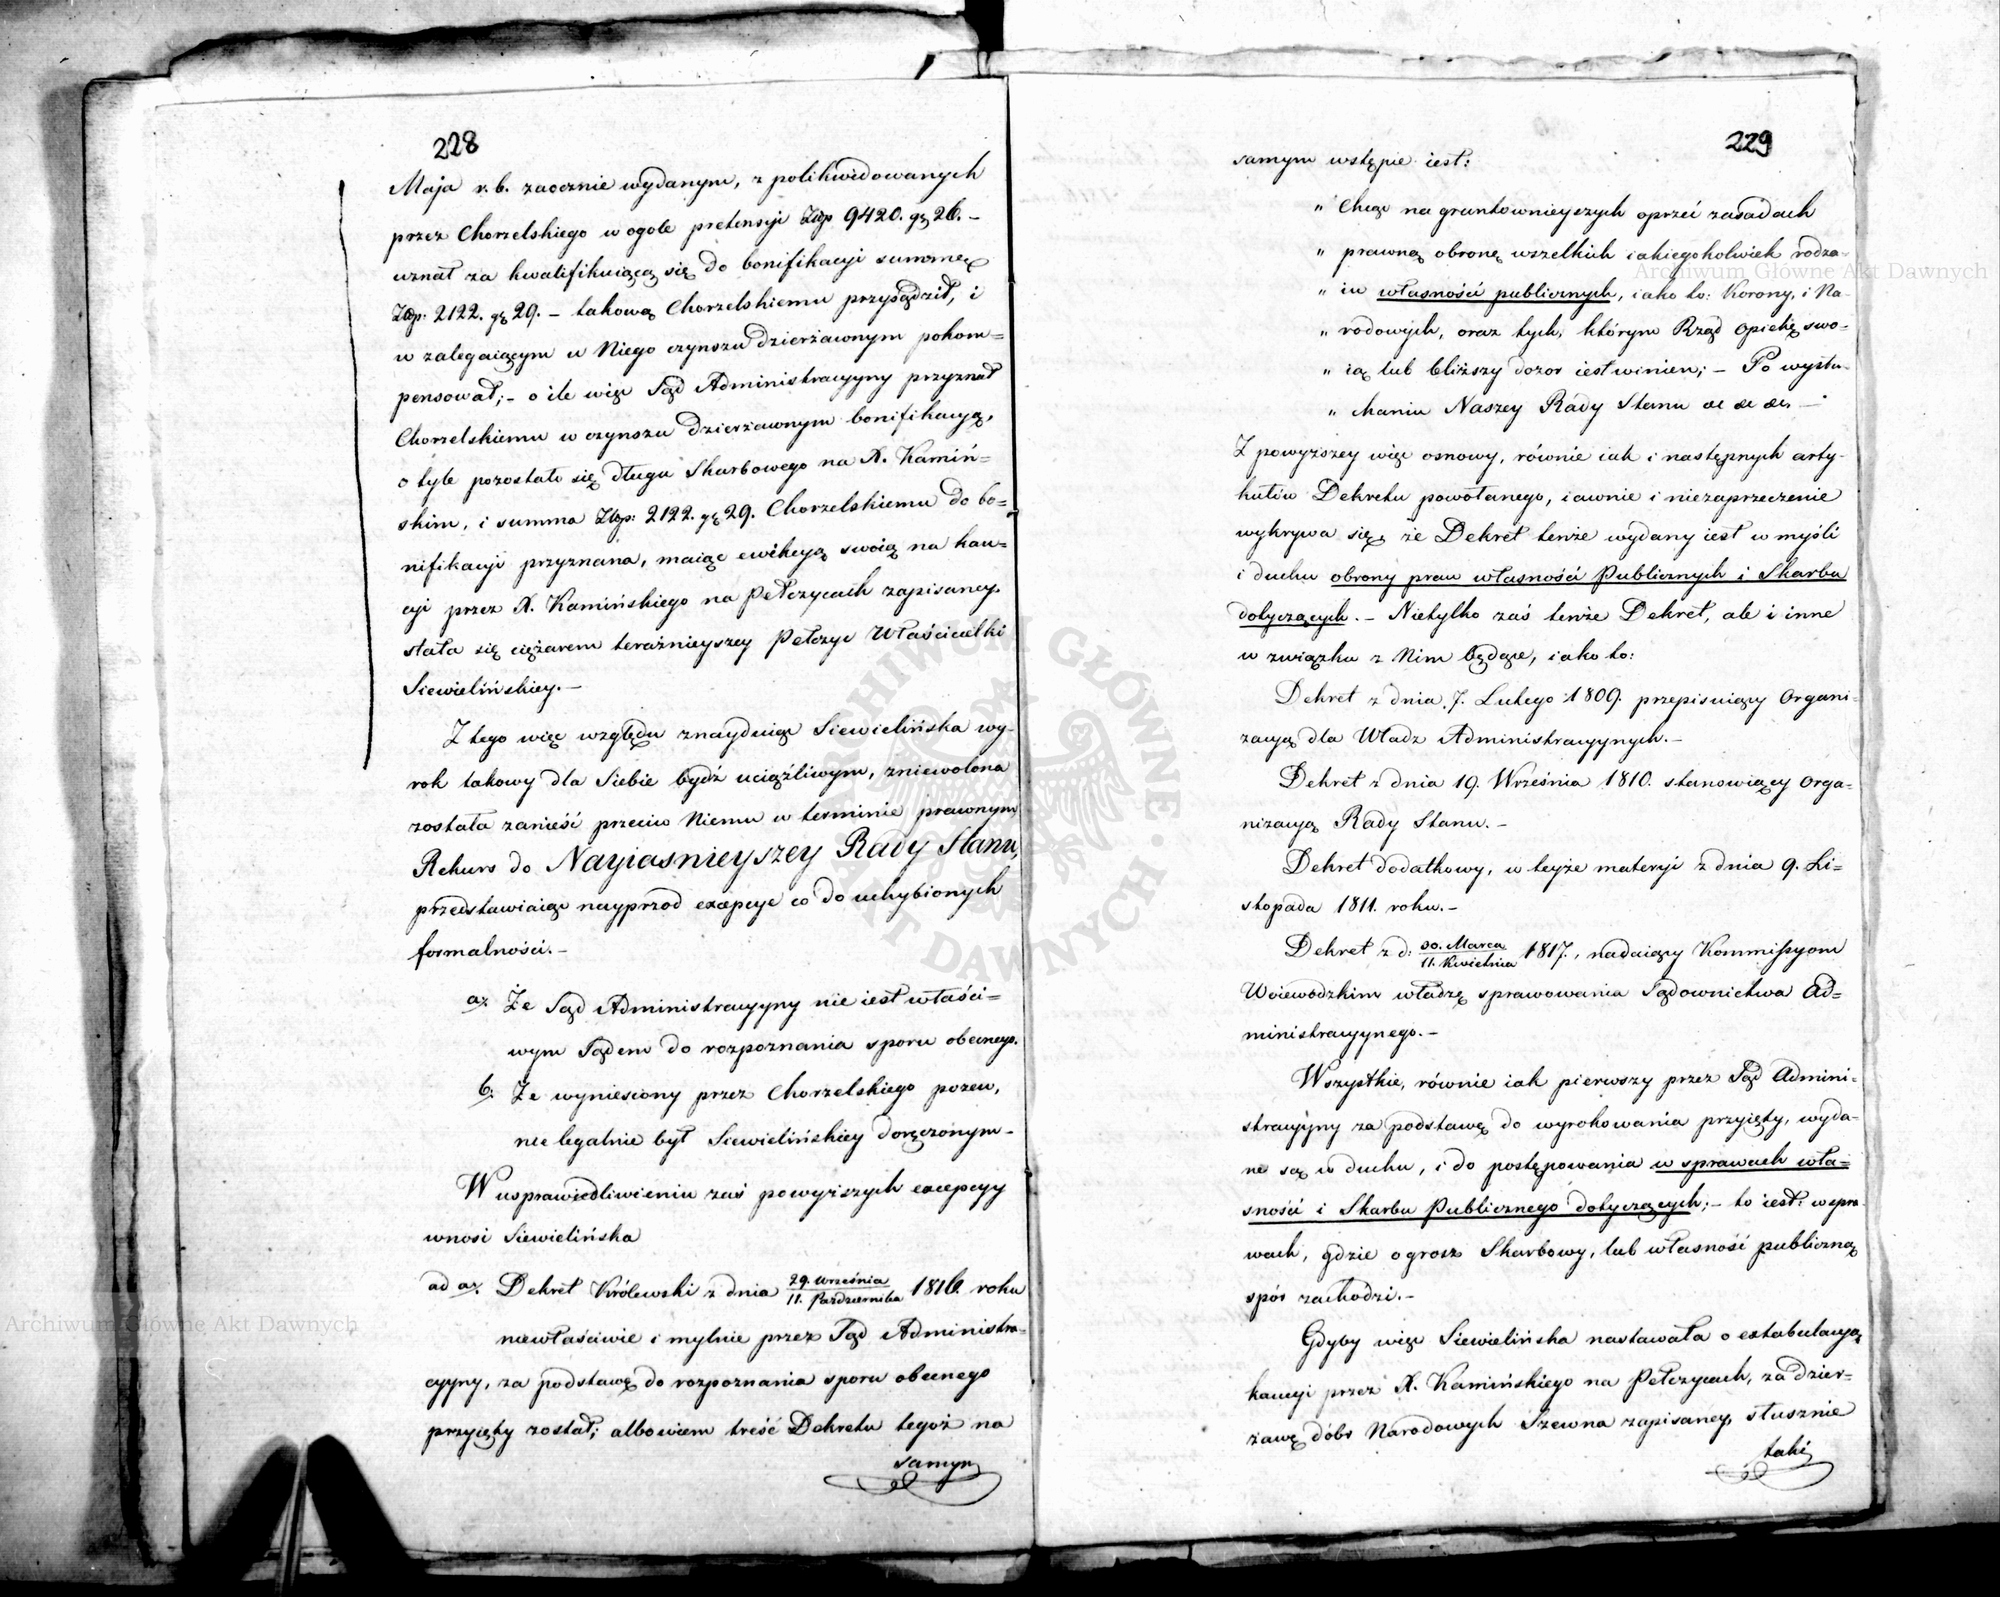 228
Maja r. b. zaocznie wydanym, z polikwidowanych
przez Chorzelskiego w ogole pretensyi Złp 9420. gr 26. –
uznał za kwalifikuiącą się do bonifikacyi summę
Złp: 2122. gr 29. – takową Chorzelskiemu przysądził, i
w zalegaiącym u Niego czynszu dzierżawnym pokom=
pensował; – o ile więc Sąd Administracyyny przyznał
Chorzelskiemu w czynszu dzierżawnym bonifikacyą,
o tyle pozostało się długu Skarbowego na X. Kamiń=
skim, i summa Złp: 2122. gr 29. Chorzelskiemu do bo=
nifikacyi przyznana, maiąc ewikcyą swoią na kau=
cyi przez X. Kamińskiego na Pełczycach zapisaney
stała się ciężarem teraźnieyszey Pełczyc Właścicielki
Siewielińskiey. –
Z tego więc względu znayduiąc Siewielińska wy=
rok takowy dla Siebie bydź uciążliwym, zniewolona
została zanieść przeciw Niemu w terminie prawnym
Rekurs do Nayiasnieyszey Rady Stanu,
przedstawiaiąc nayprzod excepcye co do uchybionych
formalności. –
a. Że Sąd Administracyyny nie iest właści=
wym Sądem do rozpoznania sporu obecnego.
b. Że wyniesiony przez Chorzelskiego pozew,
nie legalnie był Siewielińskiey doręczonym –
W usprawiedliwieniu zaś powyższych excepcyy
wnosi Siewielińska
ad a. Dekret Królewski z dnia 29. Września / 11. Października 1816. roku
niewłaściwie i mylnie przez Sąd Administra=
cyyny, za podstawę do rozpoznania sporu obecnego
przyięty został; albowiem treść Dekretu tegoż na
samym
229
samym wstępie iest:
" Chcąc na gruntownieyszych oprzeć zasadach
" prawną obronę wszelkich iakiegokolwiek rodza=
" iu własności publicznych, iako to: Korony, i Na=
" rodowych, oraz tych, którym Rząd opiekę swo=
" ią lub bliższy dozor iest winien; – Po wysłu=
" chaniu Naszey Rady Stanu &c &c &c. –
Z powyższey więc osnowy, równie iak i następnych arty=
kułów Dekretu powołanego, iawnie i niezaprzeczenie
wykrywa się, że Dekret tenże wydany iest w myśli
i duchu obrony praw własności Publicznych i Skarbu
dotyczących. – Nietylko zaś tenże Dekret, ale i inne
w związku z Nim będące, iako to:
Dekret z dnia 7. Lutego 1809. przepisuiący Organi=
zacyą dla Władz Administracyynych. –
Dekret z dnia 19. Września 1810. stanowiący Orga=
nizacyą Rady Stanu. –
Dekret dodatkowy, w teyże materyi z dnia 9. Li=
stopada 1811. roku. –
Dekret z d: 30. Marca / 11. Kwietnia 1817., nadaiący Kommissyom
Woiewodzkim władzę sprawowania Sądownictwa Ad=
ministracyynego. –
Wszystkie, równie iak pierwszy przez Sąd Admini=
stracyyny za podstawę do wyrokowania przyięty, wyda=
ne są w duchu, i do postępowania w sprawach wła=
sności i Skarbu Publicznego dotyczących; – to iest: w spra=
wach, gdzie o grosz Skarbowy, lub własność publiczną
spór zachodzi. –
Gdyby więc Siewielińska nastawała o extabulacyą
kaucyi przez X. Kamińskiego na Pełczycach, za dzier=
żawę dóbr Narodowych Szewna zapisaney, słusznie
taki
Archiwum Główne Akt Dawnych
Archiwum Główne Akt Dawnych
ARCHIWUM GŁÓWNE AKT DAWNYCH